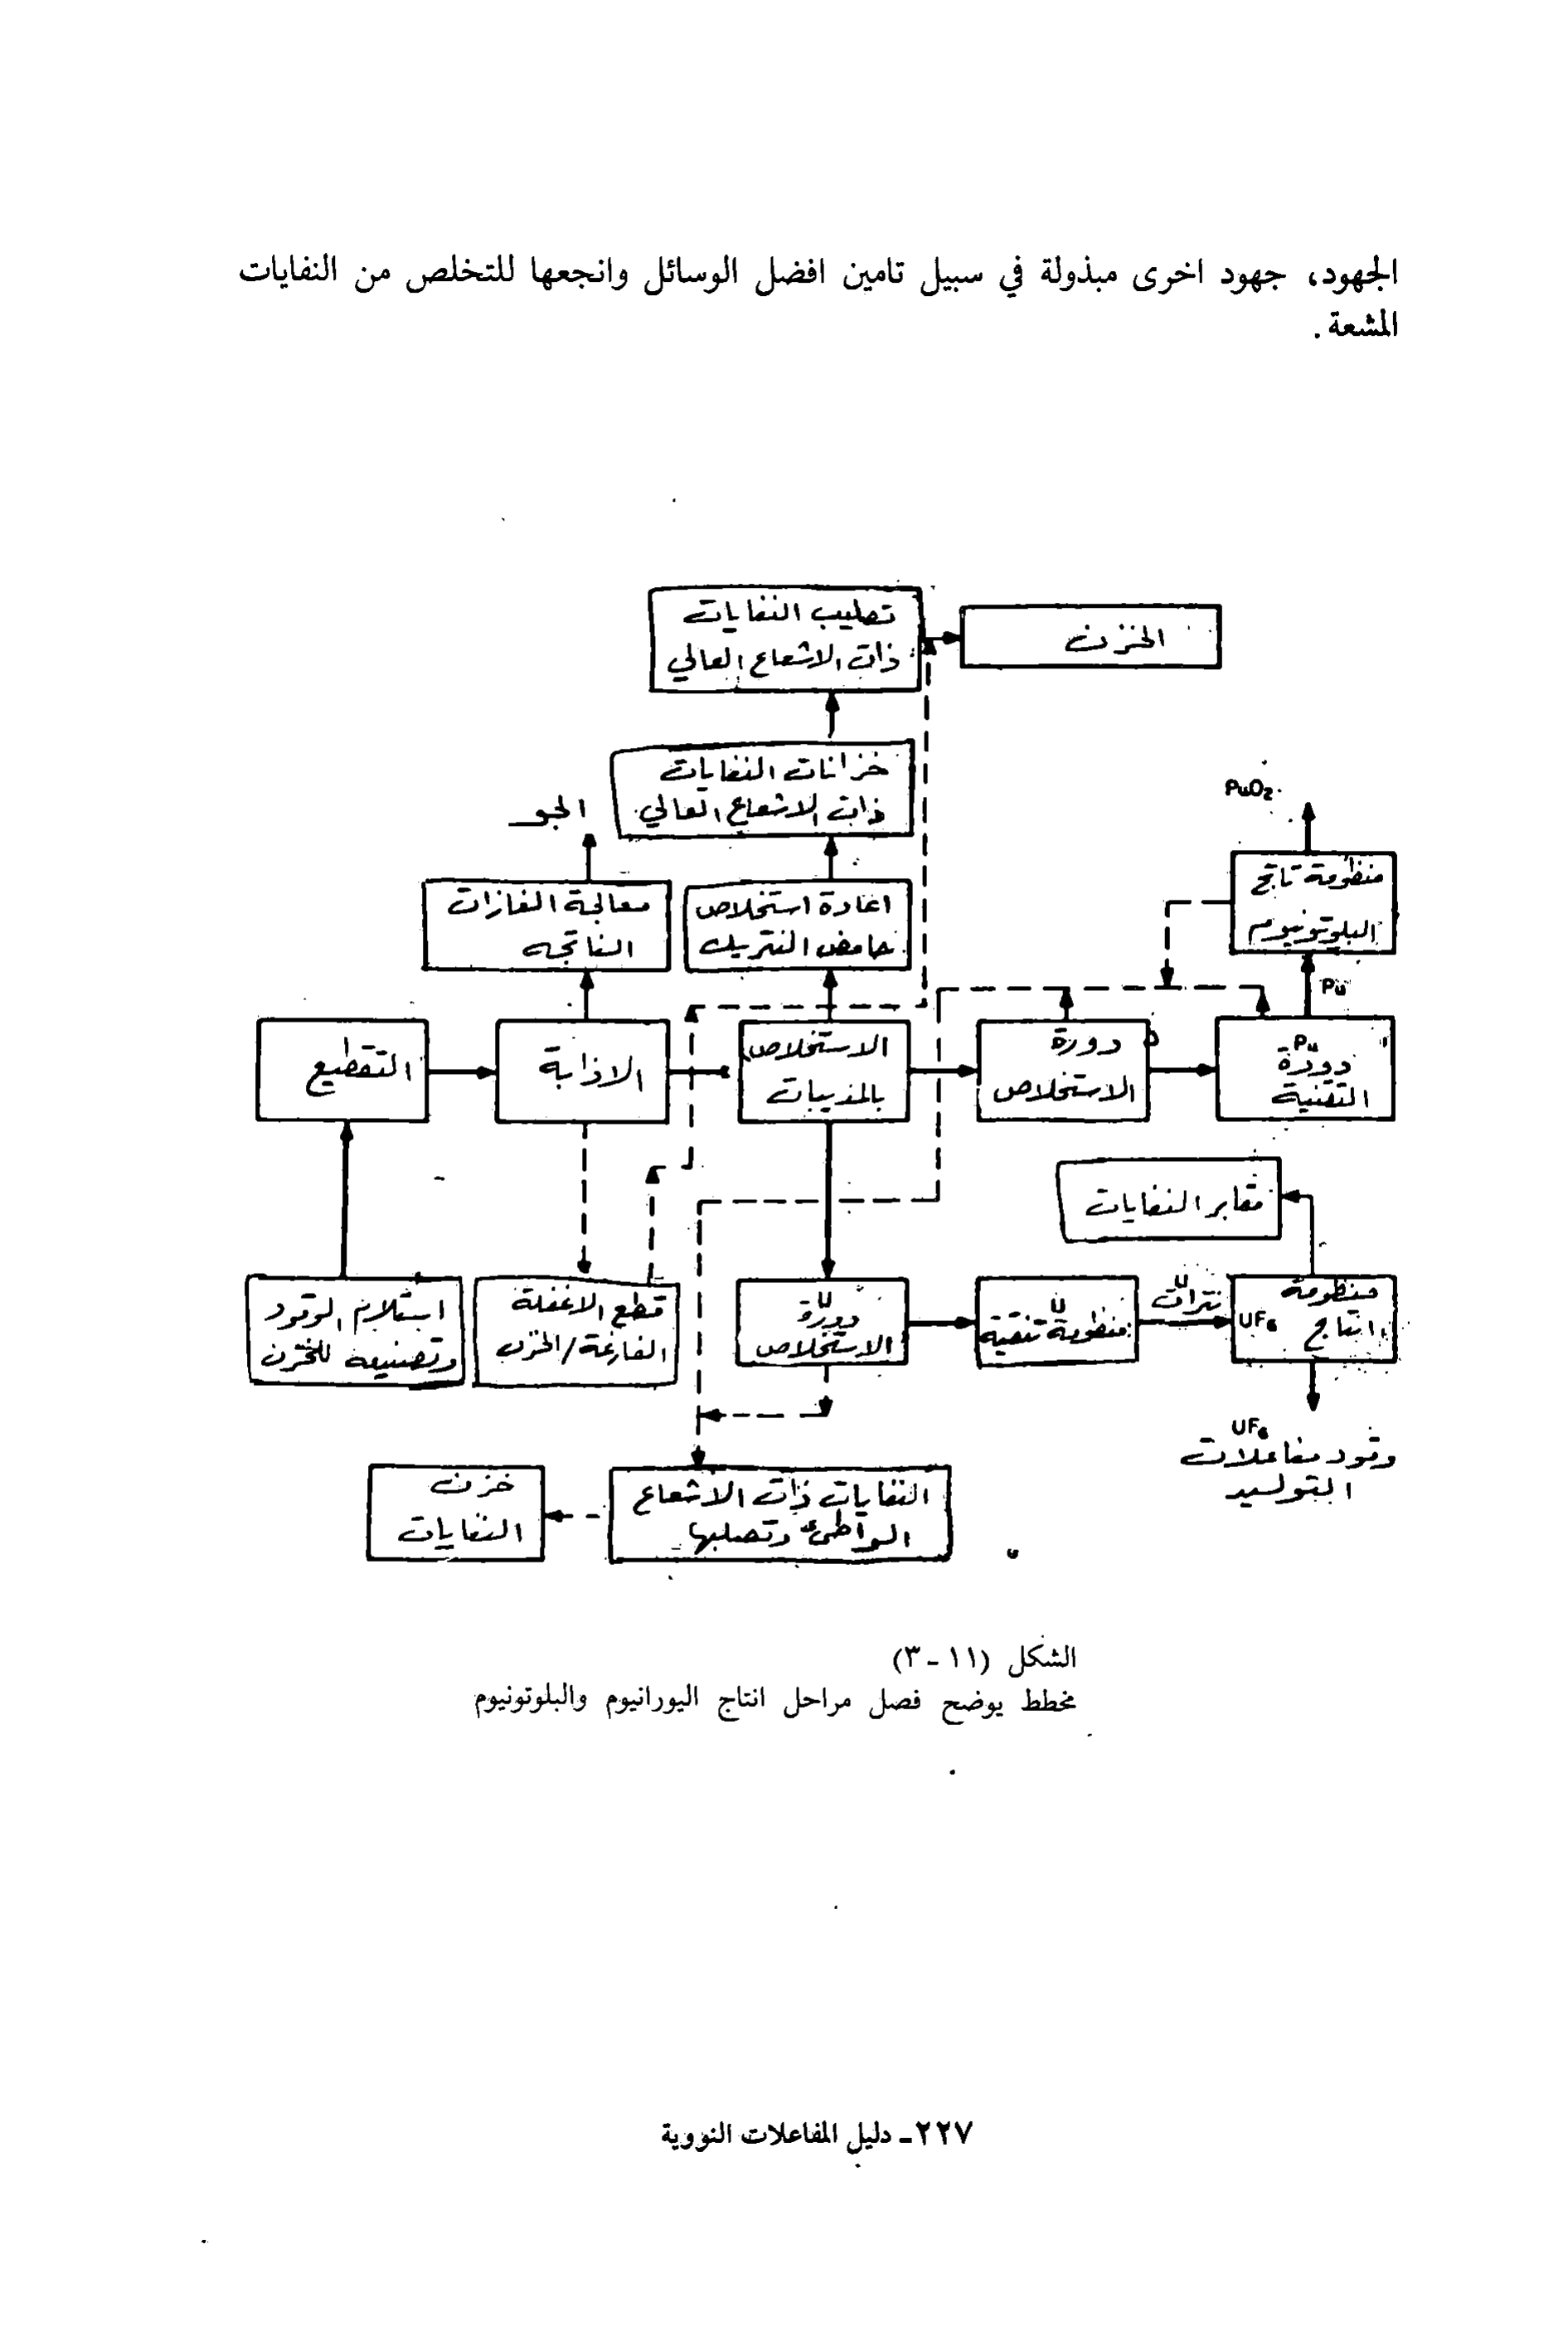 الجهود، جهود اخرى مبذولة في سبيل تامين افضل الوسائل وانجعها للتخلص من النفايات
المشعة.
تصليب النفايات
ذات الاشعاع العالي
الخزن
خزانات النفايات
ذات الاشعاع العالي
الجو
PuO₂
معالجة الغازات
الناتجه
اعادة استخلاص
حامض النتريك
منظومة ناتج
البلوتونيوم
Pu
التقطيع
الاذابة
الاستخلاص
بالمذيبات
دورة
الاستخلاص
Pu
دورة
التقنية
مقابر النفايات
استلام الوقود
وتصنيعه للخزن
قطع الاغفلة
الفارغة/الخزن
U
دورة
الاستخلاص
U
منظومة تنقية
U
نترات
منظومة
انتاج
UF₆
UF₆
وقود مفاعلات
التوليد
خزن
النفايات
النفايات ذات الاشعاع
الواطئ وتصلبها
الشكل (١١ - ٣)
مخطط يوضح فصل مراحل انتاج اليورانيوم والبلوتونيوم
٢٢٧ـ دليل المفاعلات النووية